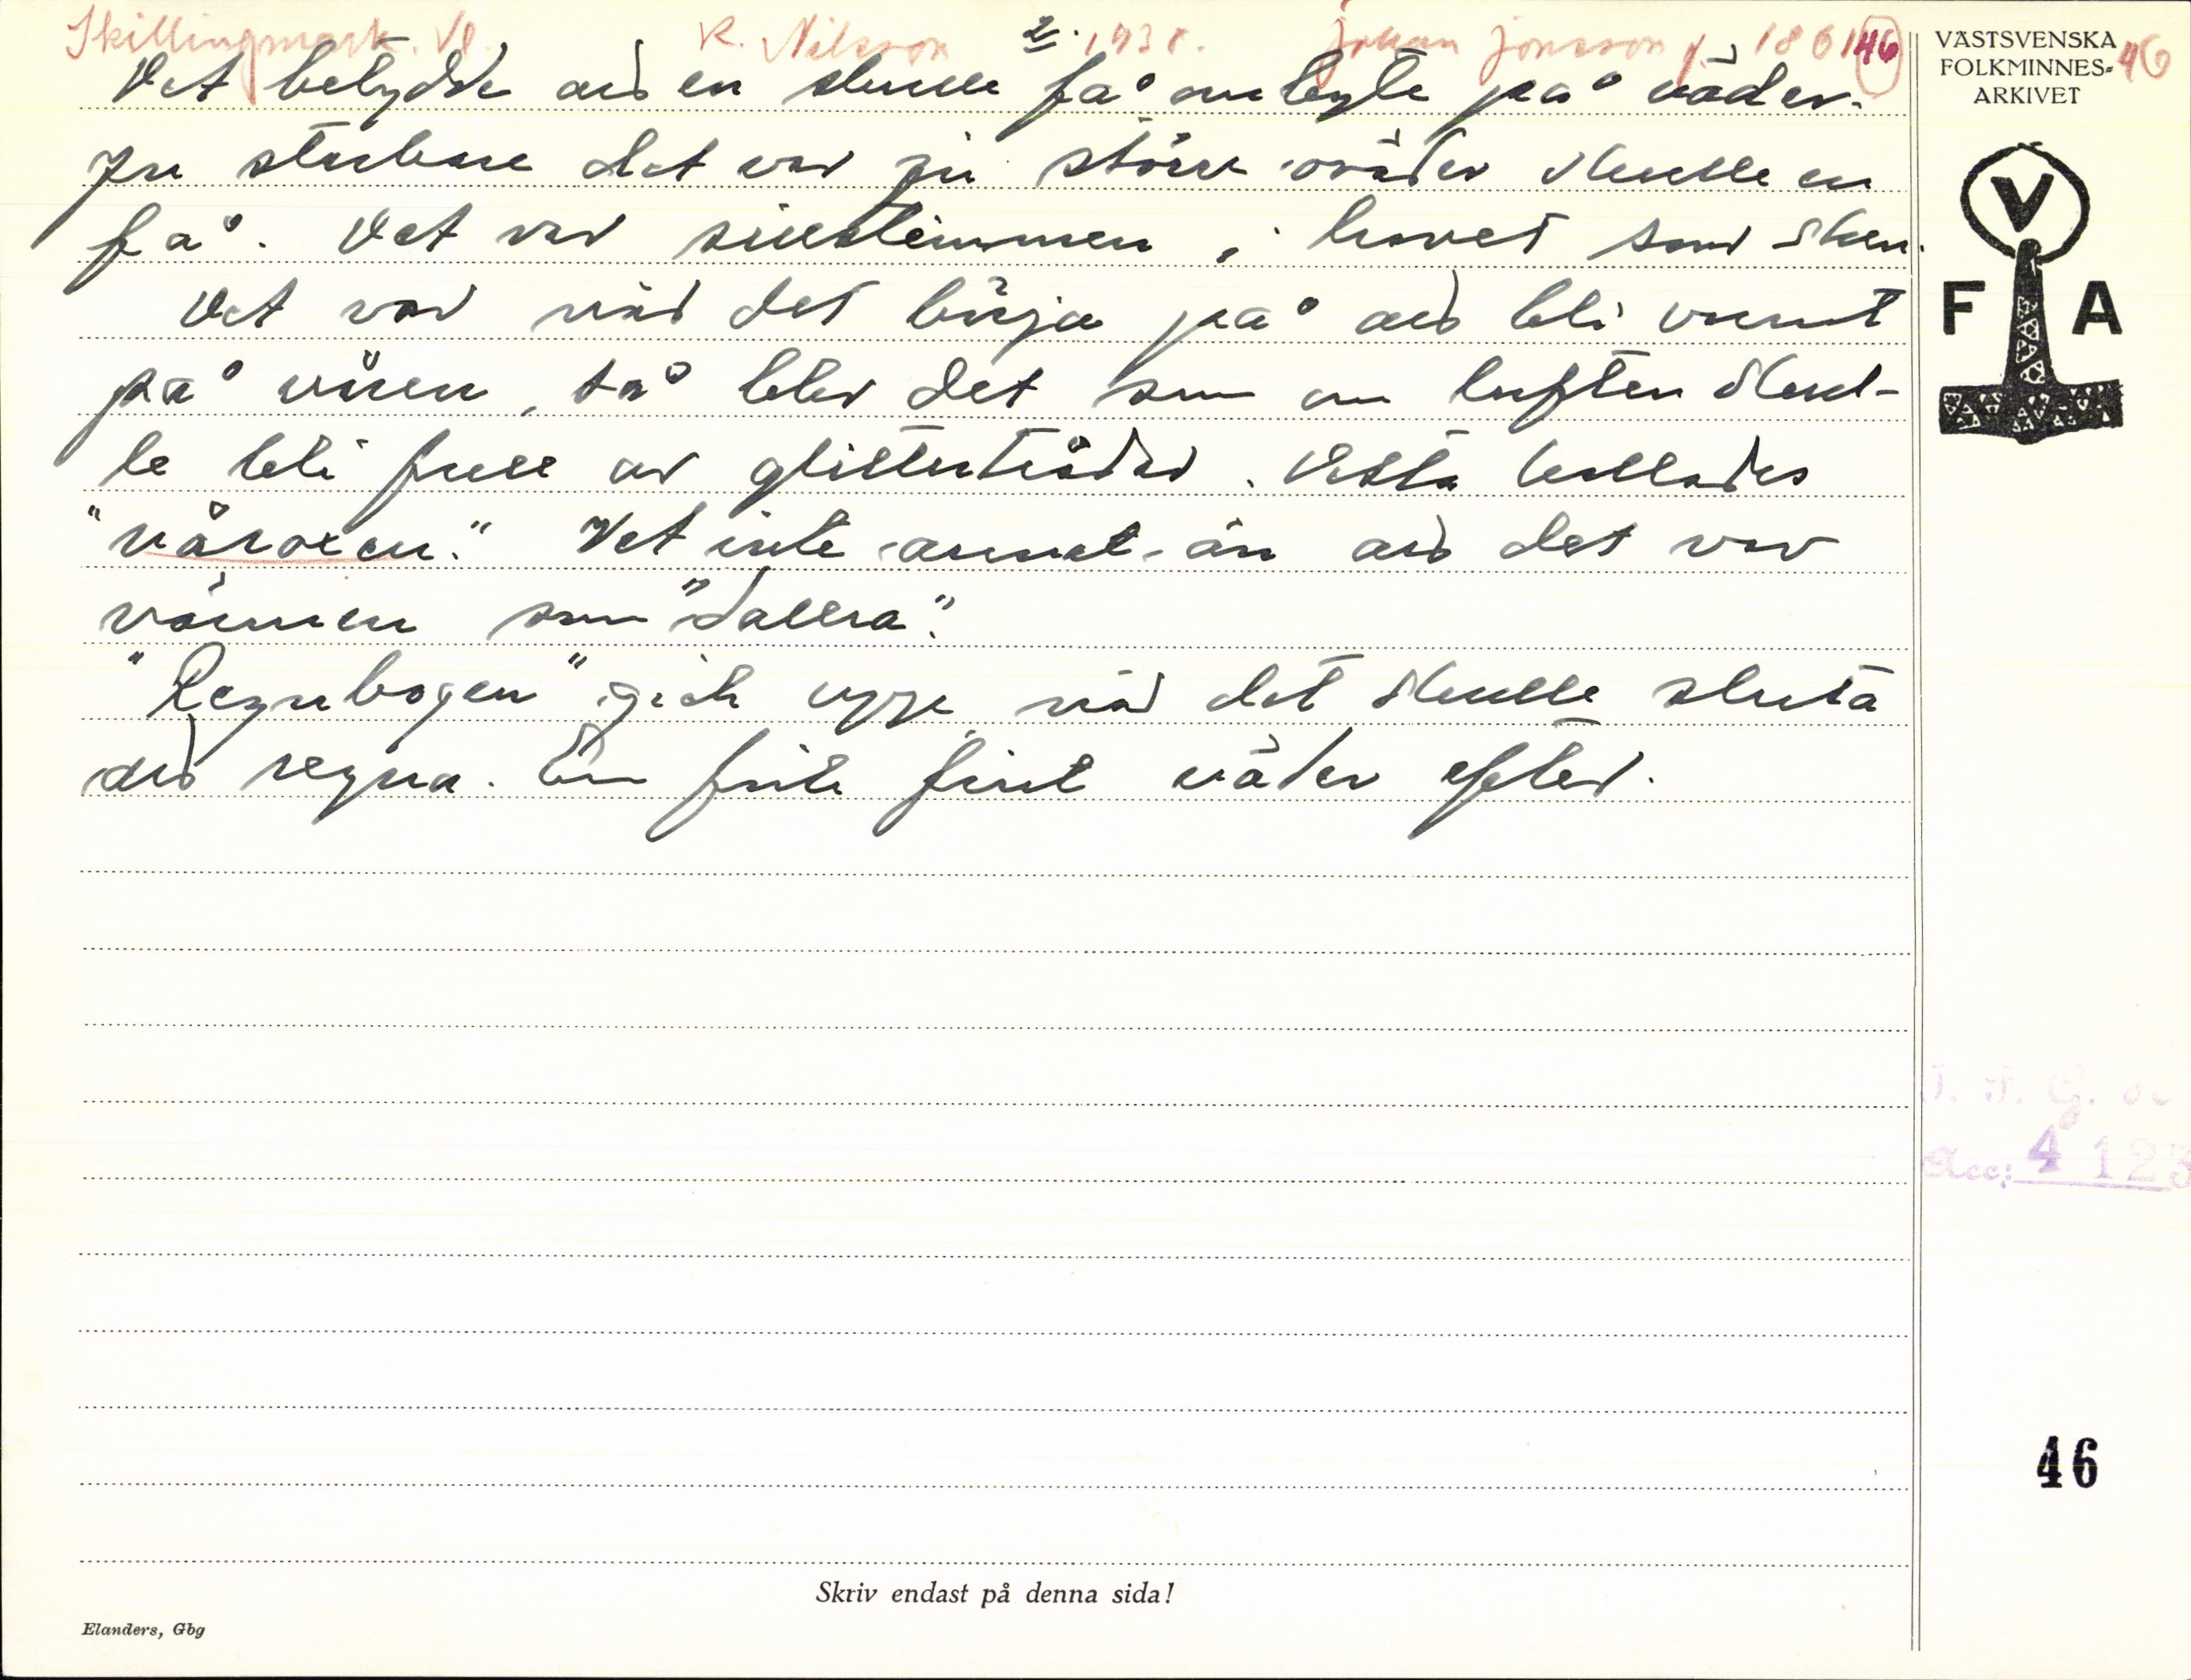 Skillingmark. Vl. K. Nilsson 2. 1938. Johan Jonsson f. 1861 46
Det betydde att en skulle få ombyte på väder.
Ju starkare det var ju större oväder skulle en
få. Det var sillstimmen i havet som sken.
Det var när det börja på att bli varmt
på våren, så blev det som om luften skul-
le bli full av glittertrådar. Detta kallades
"våroxen." Vet inte annat än att det var
värmen som "dallra".
"Regnbogen" gick uppe när det skulle sluta
att regna. En fick fint väder efter.
VÄSTSVENSKA
FOLKMINNES-
ARKIVET
46
V
F A
Acc: 4123
46
Skriv endast på denna sida!
Elanders, Gbg